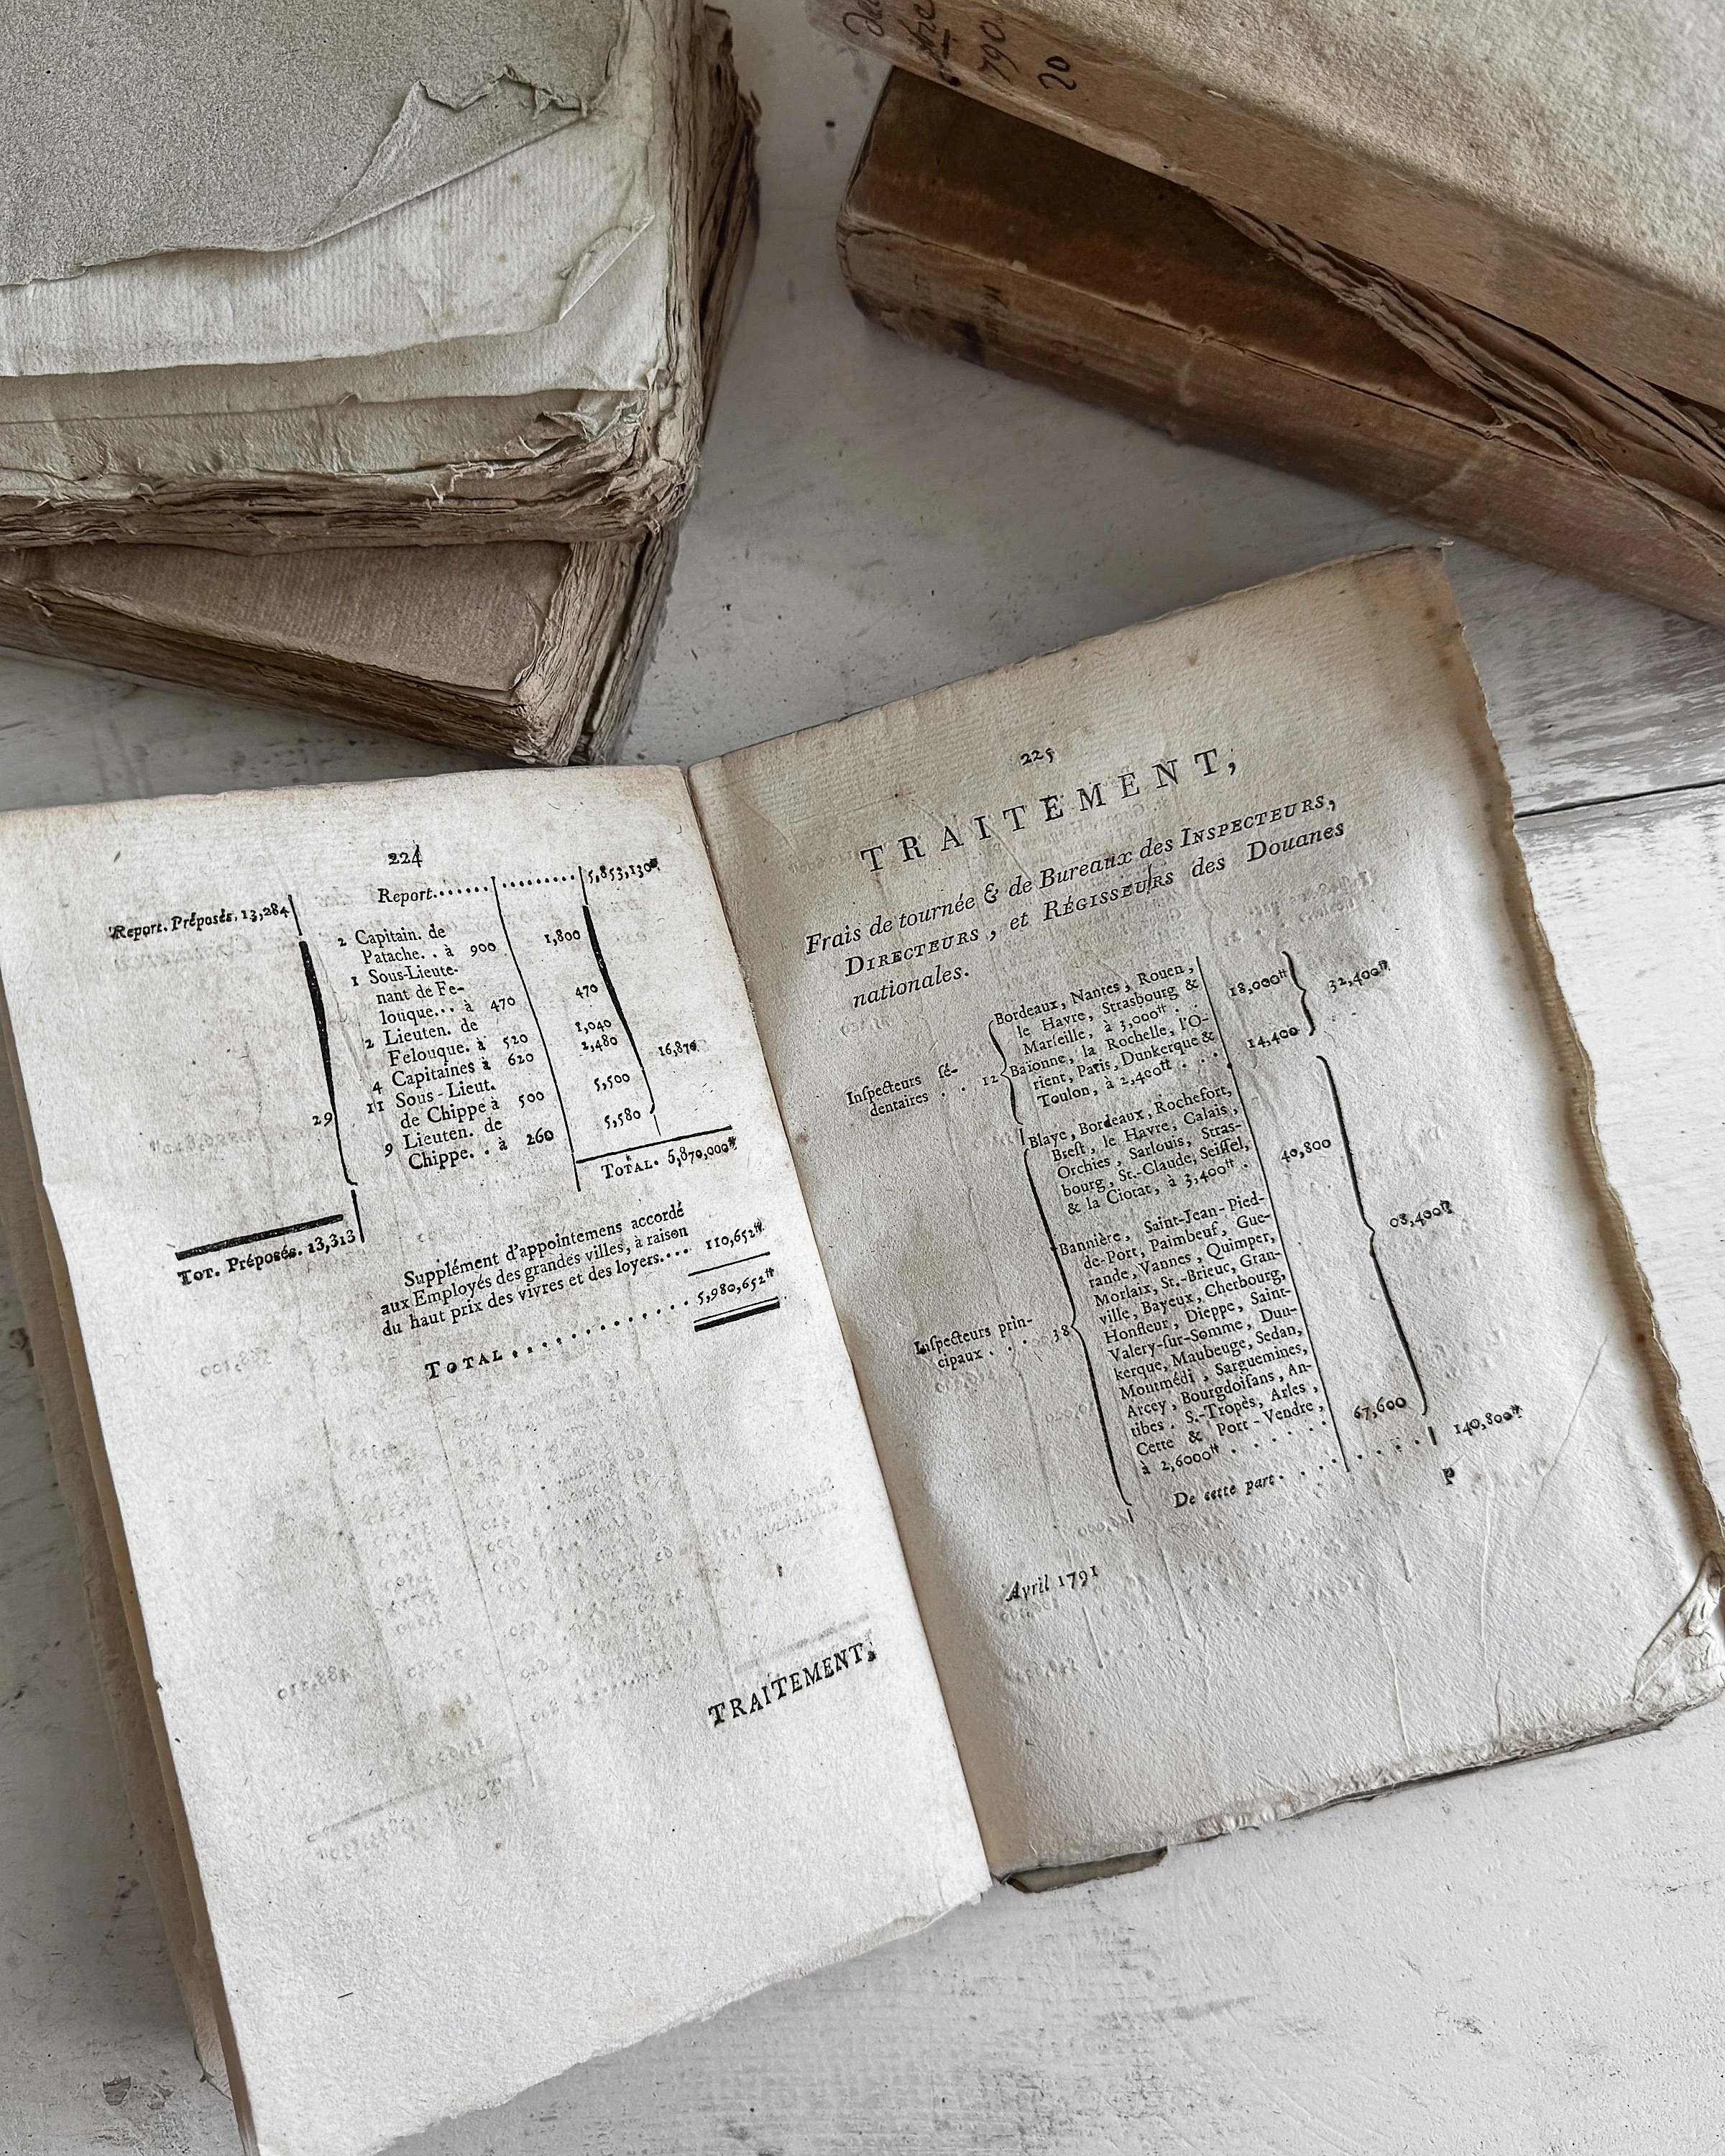 790
20
224
Report. Préposés. 13,284
Report....... ......... 5,853,130₶
2 Capitain. de
Patache. . à 900 1,800
1 Sous-Lieute-
nant de Fe-
louque... à 470 470
2 Lieuten. de
Félouque. à 520 1,040
4 Capitaines à 620 2,480
11 Sous-Lieut.
de Chippe à 500 5,500
9 Lieuten. de
Chippe. . à 260 5,580
29
16,870
TOTAL. 5,870,000₶
TOT. Préposés. 13,313
Supplément d'appointemens accordé
aux Employés des grandes villes, à raison
du haut prix des vivres et des loyers.... 110,652₶
TOTAL . . . . . . . . . . . . 5,980,652₶
TRAITEMENT,
225
TRAITEMENT,
Frais de tournée & de Bureaux des INSPECTEURS,
DIRECTEURS, et RÉGISSEURS des Douanes
nationales.
Inſpecteurs ſé-
dentaires . . 12
Bordeaux, Nantes, Rouen,
le Havre, Strasbourg &
Marſeille, à 3,000₶ . . 18,000₶
Baïonne, la Rochelle, l'O-
rient, Paris, Dunkerque &
Toulon, à 2,400₶ . . . 14,400
32,400₶
Inſpecteurs prin-
cipaux . . . . 38
Blaye, Bordeaux, Rochefort,
Breſt, le Havre, Calais,
Orchies, Sarlouis, Stras-
bourg, St.-Claude, Seiſſel,
& la Ciotat, à 3,400₶ . 40,800
Bannière, Saint-Jean-Pied-
de-Port, Paimbeuf, Gue-
rande, Vannes, Quimper,
Morlaix, St.-Brieuc, Gran-
ville, Bayeux, Cherbourg,
Honfleur, Dieppe, Saint-
Valery-ſur-Somme, Dun-
kerque, Maubeuge, Sedan,
Montmédi, Sarguemines,
Arcey, Bourgdoiſans, An-
tibes. S.-Tropès, Arles,
Cette & Port-Vendre,
à 2,6000₶ . . . . . 67,600
08,400₶
De cette part. . . . . . . . . 140,800₶
P
Avril 1791